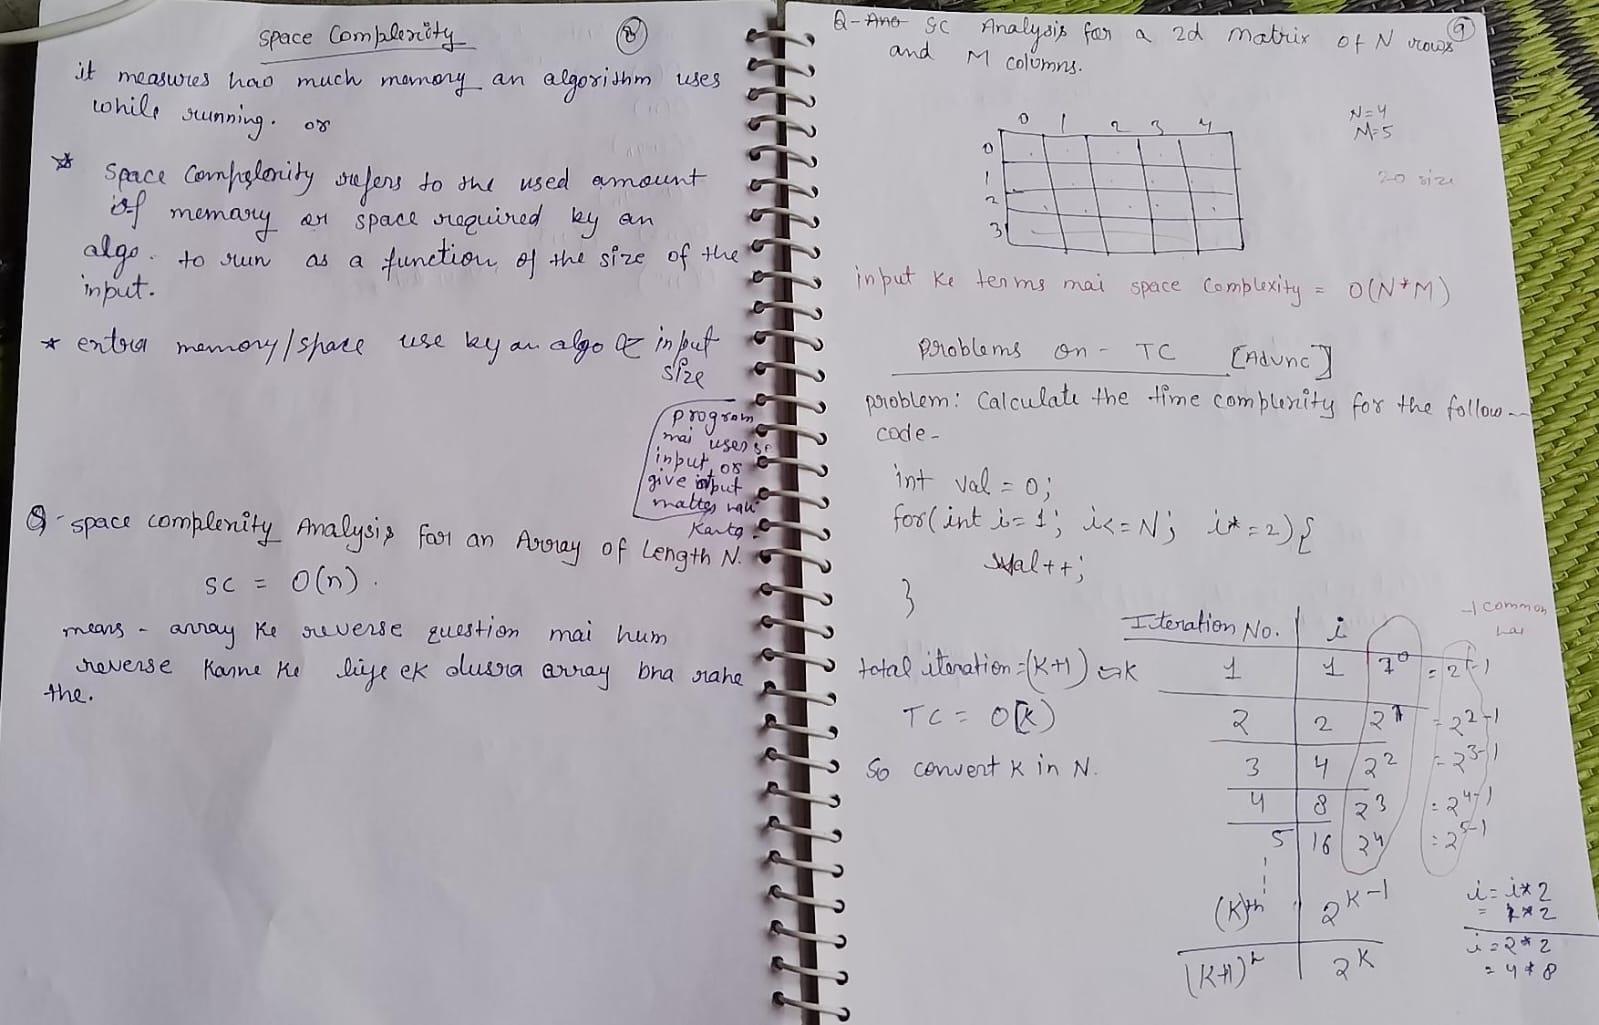 Space Complexity
8
it measures hao much memory an algorithm uses
while running. or
* Space Complexity refers to the used amount
of memary or space required by an
algo. to run as a function of the size of the
input.
* extra memory/space use by an algo ∝ input
size
program
mai user se
input or
give
matter nahi
Karta
Q - space complexity Analysis for an Array of Length N.
SC = O(n).
means - array ke reverse question mai hum
reverse karne ke liye ek dusra array bna rahe
the.
9
Q- SC Analysis for a 2d matrix of N rows
and M columns.
N=4
M=5
0 1 2 3 4
0
1
2
3
20 size
input ke terms mai space Complexity = O(N*M)
Problems on - TC [Advnc]
problem: Calculate the time complexity for the follow
code-
int val = 0;
for(int i=1; i<=N; i*=2){
val++;
}
-1 common
hai
Iteration No. | i
1 | 1 2^0 = 2^1-1
2 | 2 2^1 = 2^2-1
3 | 4 2^2 = 2^3-1
4 | 8 2^3 = 2^4-1
5 | 16 2^4 = 2^5-1
(K)th | 2^K-1
(K+1)th | 2^K
total iteration = (K+1) ≈ K
TC = O(K)
So convert K in N.
i = i*2
= 1*2
i = 2*2
= 4*8